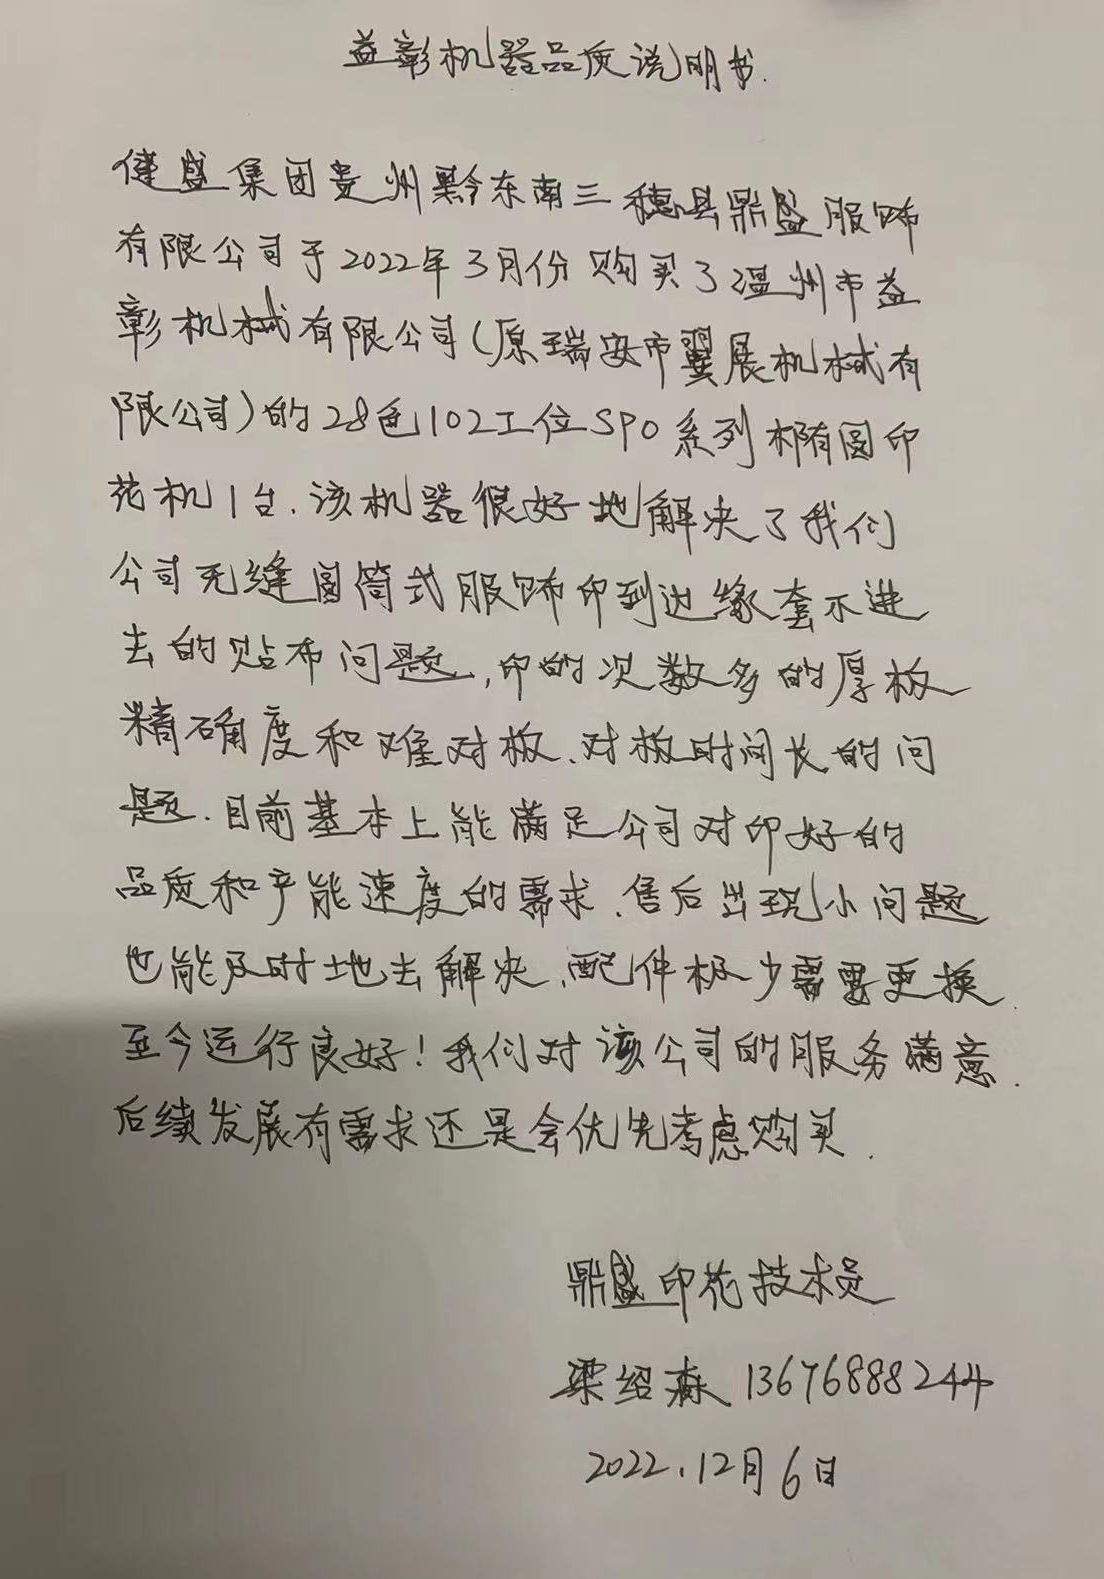 益彰机器品质说明书.
健盛集团贵州黔东南三穗县鼎盛服饰
有限公司于2022年3月份购买了温州市益
彰机械有限公司(原瑞安市翼展机械有
限公司)的28色102工位SPO系列椭圆印
花机1台.该机器很好地解决了我们
公司无缝圆筒式服饰印到边缘套不进
去的贴布问题,印的次数多的厚板
精确度和难对板.对板时间长的问
题.目前基本上能满足公司对印好的
品质和产能速度的需求.售后出现小问题
也能及时地去解决.配件极少需要更换.
至今运行良好!我们对该公司的服务满意.
后续发展有需求还是会优先考虑购买.
鼎盛印花技术员
梁绍森 13676888244
2022.12月6日